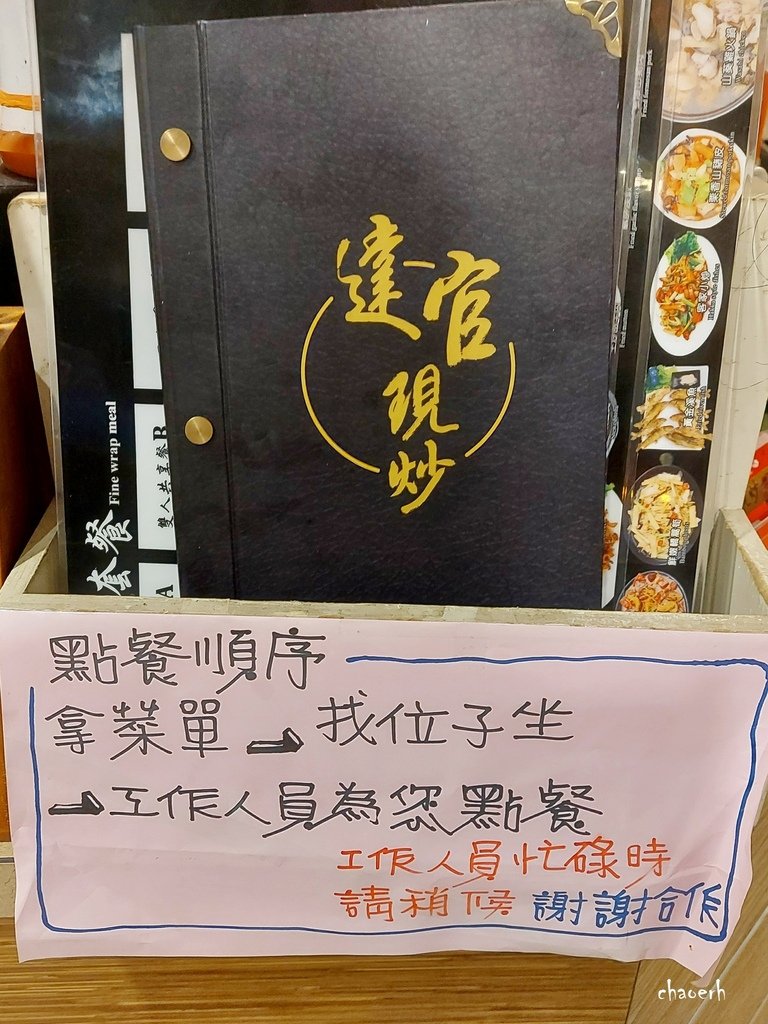 達官
現
炒
套餐 Fine wrap meal
雙人共享餐B
A
客家小炒
黃金溪魚
點餐順序
拿菜單→找位子坐
→工作人員為您點餐
工作人員忙碌時
請稍候 謝謝合作
chaoerh